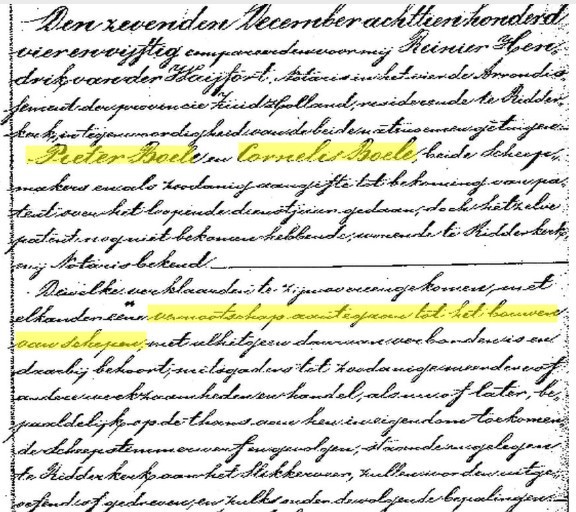 Den zevenden December achttien honderd
vier en vijftig compareerden voor mij Reinier Hen
drik van der Huijfort, Notaris in het vierde Arrondis
sement der provincie Zuid Holland, residerende te Ridder
kerk, in tegenwoordigheid van de beide natenoemen getuigen
Pieter Boele en Cornelis Boele, beide Scheep,
makers en als zoodanig aangifte tot bekoming van pa,
tent over het loopende dienstjaar gedaan, doch hetzelve
patent nog niet bekomen hebbende, wonende te Ridderkerk,
mij Notaris bekend.
Dewelke verklaarden te zijn overeengekomen, met
elkander eene vennootschap aantegaan tot het bouwen
van schepen, met al hetgeen daaraan verbonden is en
daarbij behoort, mitsgaders tot zoodanige
andere werkzaamheden en handel, als nu of later, be,
paaldelijk op de thans aan hen in eigendom toekomen
de Scheepstimmerwerf en gevolgen, staande en gelegen
te Ridderkerk aan het Slikkerveer, zullen worden uitge,
oefend of gedreven, en zulks onder de volgende bepalingen.